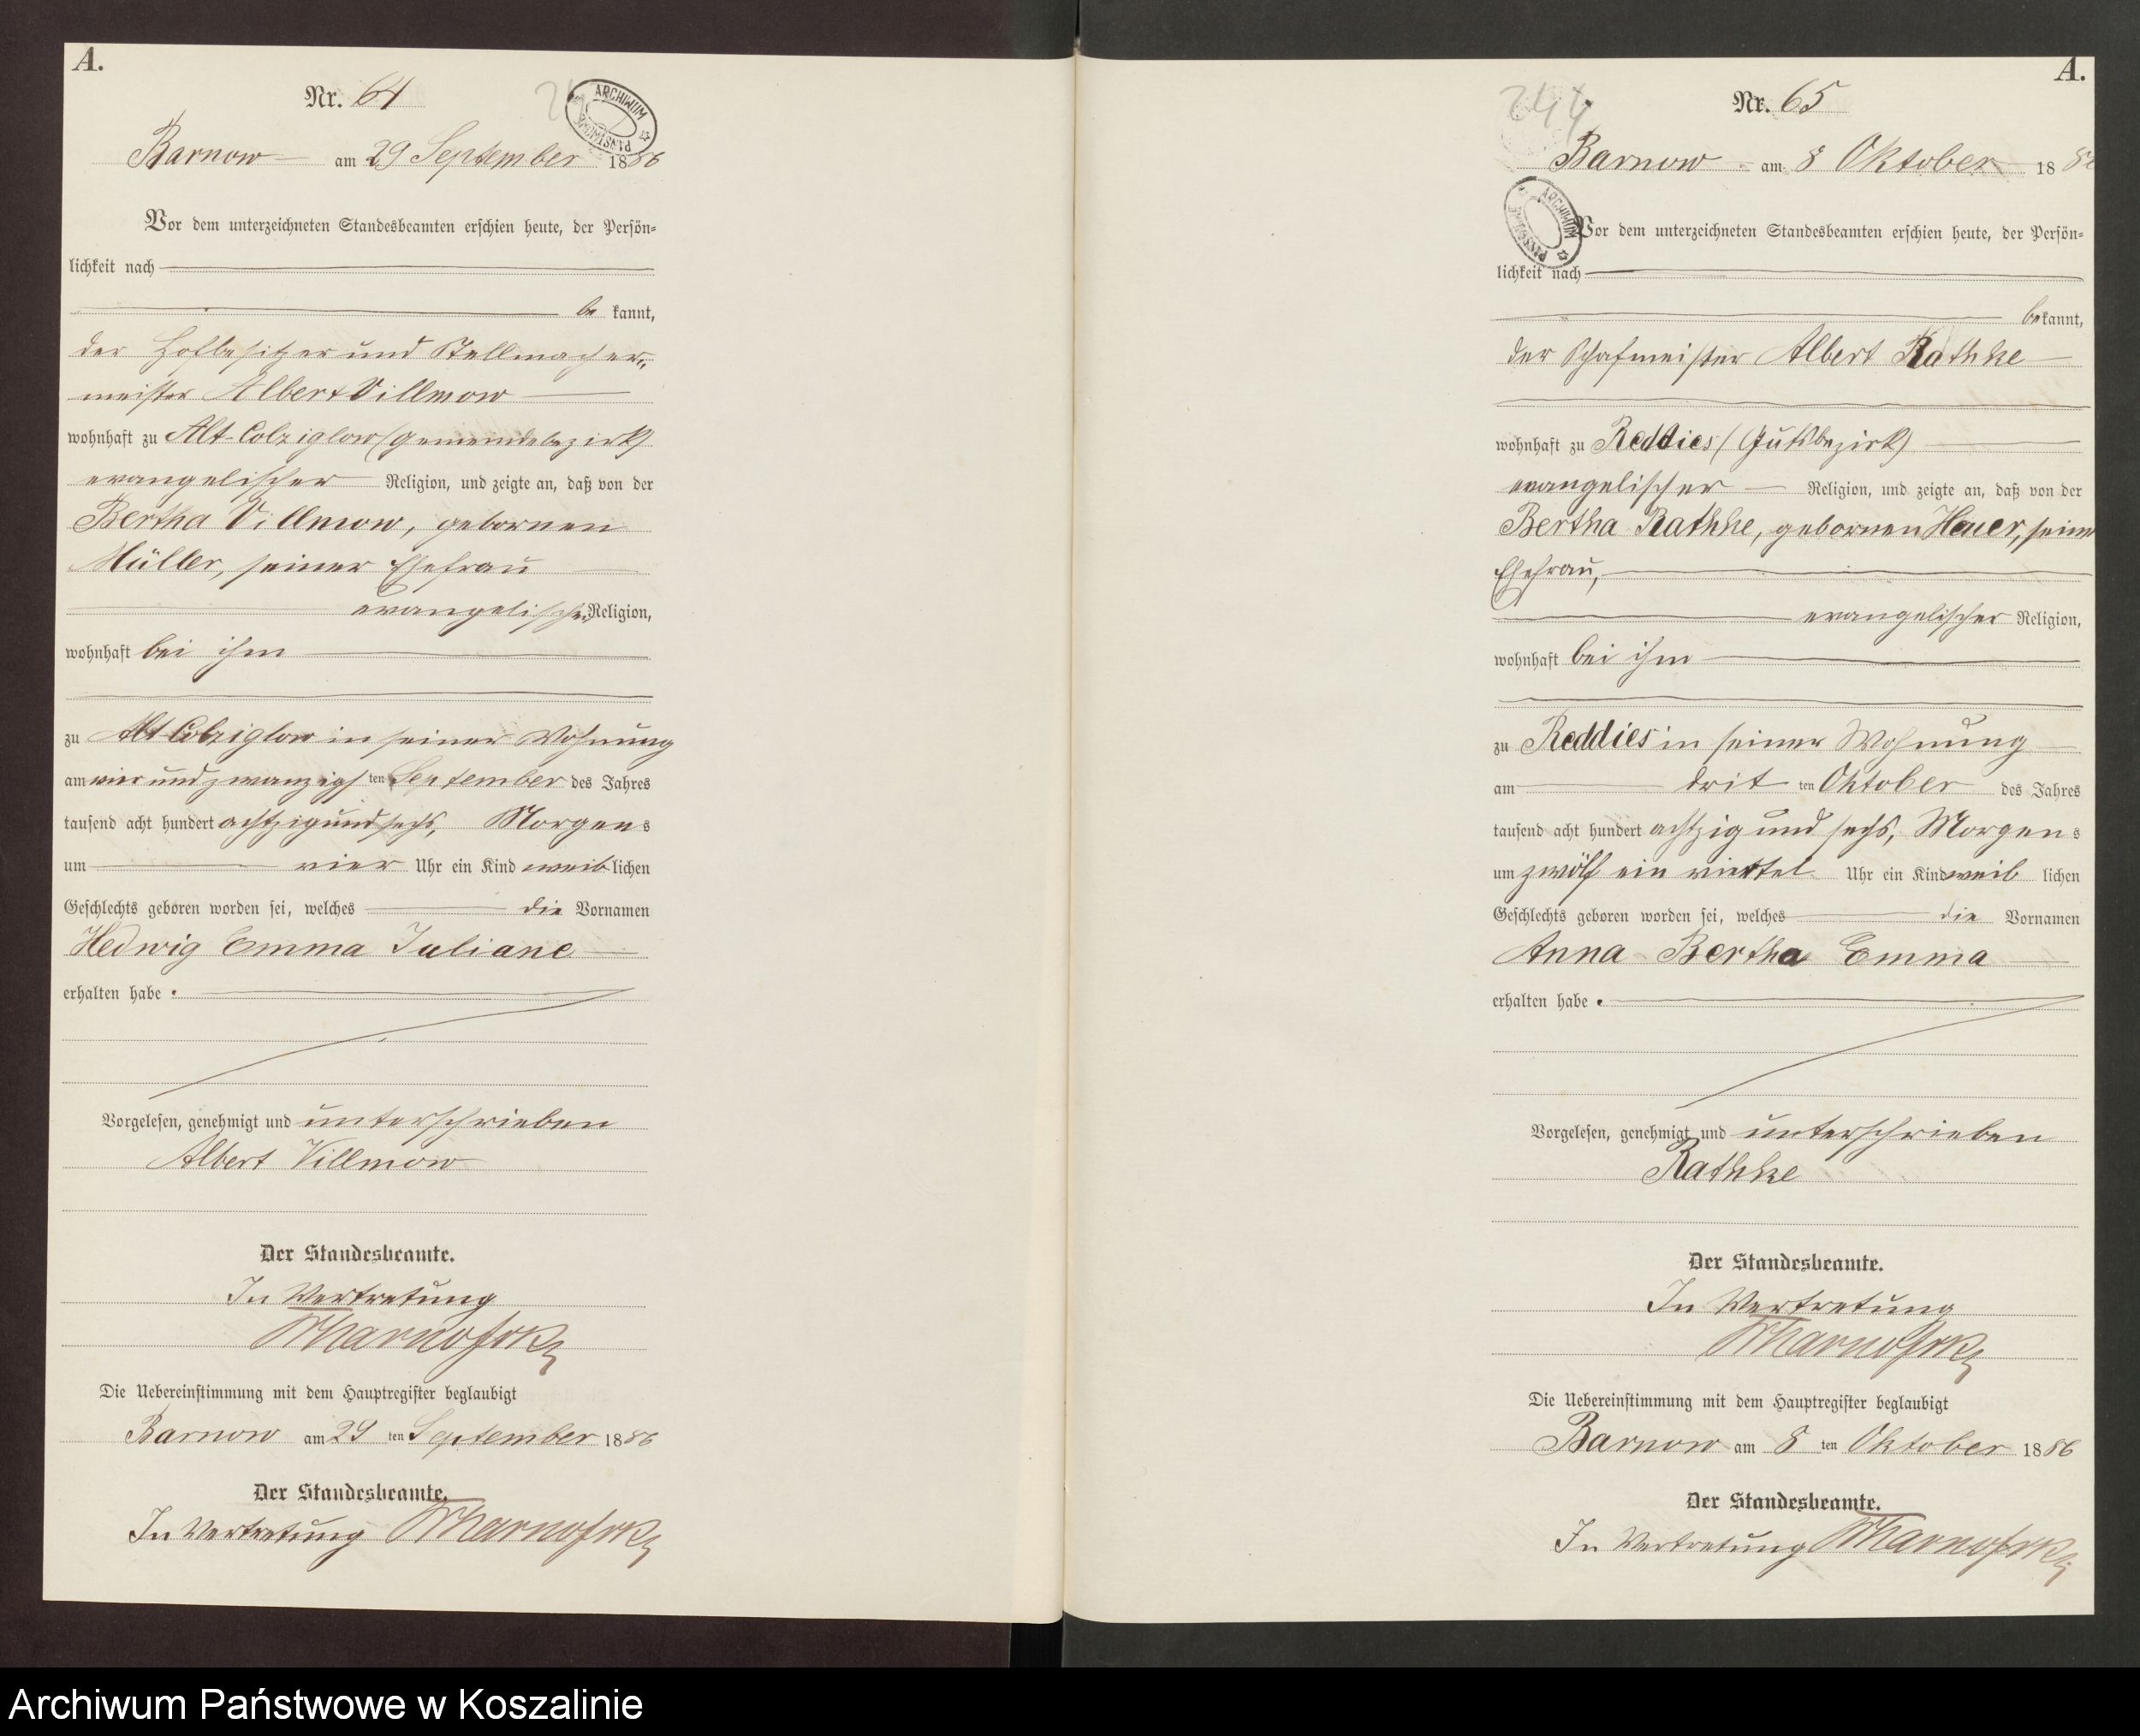 A.
Nr. 64
ARCHIWUM PAŃSTWOWE
Barnow am 29 September 1886
Vor dem unterzeichneten Standesbeamten erschien heute, der Persön-
lichkeit nach
be kannt,
der Hofbesitzer und Stellmacher-
meister Albert Villmow
wohnhaft zu Alt-Colziglow (Gemeindebezirk)
evangelischer Religion, und zeigte an, daß von der
Bertha Villmow, gebornen
Müller, seiner Ehefrau
evangelischer Religion,
wohnhaft bei ihm
zu Alt Colziglow in seiner Wohnung
am vier und zwanzigs ten September des Jahres
tausend acht hundert achtzig und sechs, Morgens
um vier Uhr ein Kind weiblichen
Geschlechts geboren worden sei, welches die Vornamen
Hedwig Emma Juliane
erhalten habe.
Vorgelesen, genehmigt und unterschrieben
Albert Villmow
Der Standesbeamte.
In Vertretung
Die Uebereinstimmung mit dem Hauptregister beglaubigt
Barnow am 29 ten September 1886
Der Standesbeamte.
In Vertretung
A.
244
Nr. 65
Barnow am 8 Oktober 18 86
ARCHIWUM PAŃSTWOWE
Vor dem unterzeichneten Standesbeamten erschien heute, der Persön-
lichkeit nach
bekannt,
der Schafmeister Albert Rathke
wohnhaft zu Reddies (Gutsbezirk)
evangelischer Religion, und zeigte an, daß von der
Bertha Rathke, gebornen Heuer, seiner
Ehefrau,
evangelischer Religion,
wohnhaft bei ihm
zu Reddies in seiner Wohnung
am drit ten Oktober des Jahres
tausend acht hundert achtzig und sechs, Morgens
um zwölf ein viertel Uhr ein Kind weib lichen
Geschlechts geboren worden sei, welches die Vornamen
Anna Bertha Emma
erhalten habe.
Vorgelesen, genehmigt und unterschrieben
Rathke
Der Standesbeamte.
In Vertretung
Die Uebereinstimmung mit dem Hauptregister beglaubigt
Barnow am 8 ten Oktober 1886
Der Standesbeamte.
In Vertretung
Archiwum Państwowe w Koszalinie